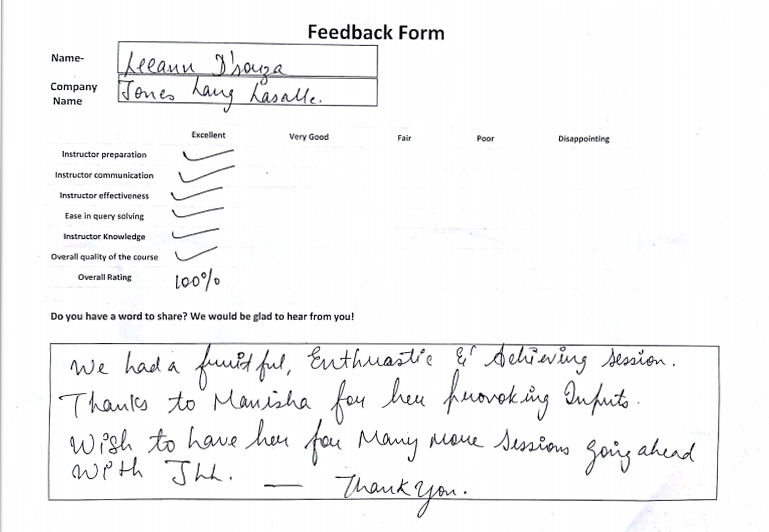 Feedback Form
Name- Leeann D'souza
Company Name Jones Lang Lasalle.
Excellent Very Good Fair Poor Disappointing
Instructor preparation ✓
Instructor communication ✓
Instructor effectiveness ✓
Ease in query solving ✓
Instructor Knowledge ✓
Overall quality of the course ✓
Overall Rating 100%
Do you have a word to share? We would be glad to hear from you!
We had a fruitful, Enthuastic & Achieving session.
Thanks to Manisha for her provoking Inputs.
Wish to have her for Many more sessions going ahead
With JLL. — Thank You.